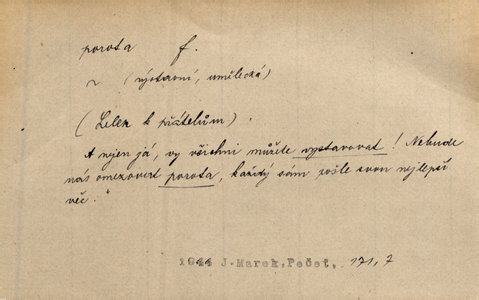 porota f.
~ (výstavní, umělecká)
(Lelek k přátelům)
A nejen já, vy všichni můžete vystavovat! Nebude
nás omezovat porota, každý sám pošle svou nejlepší
věc."
1944 J.Marek,Pečeť, 171,7